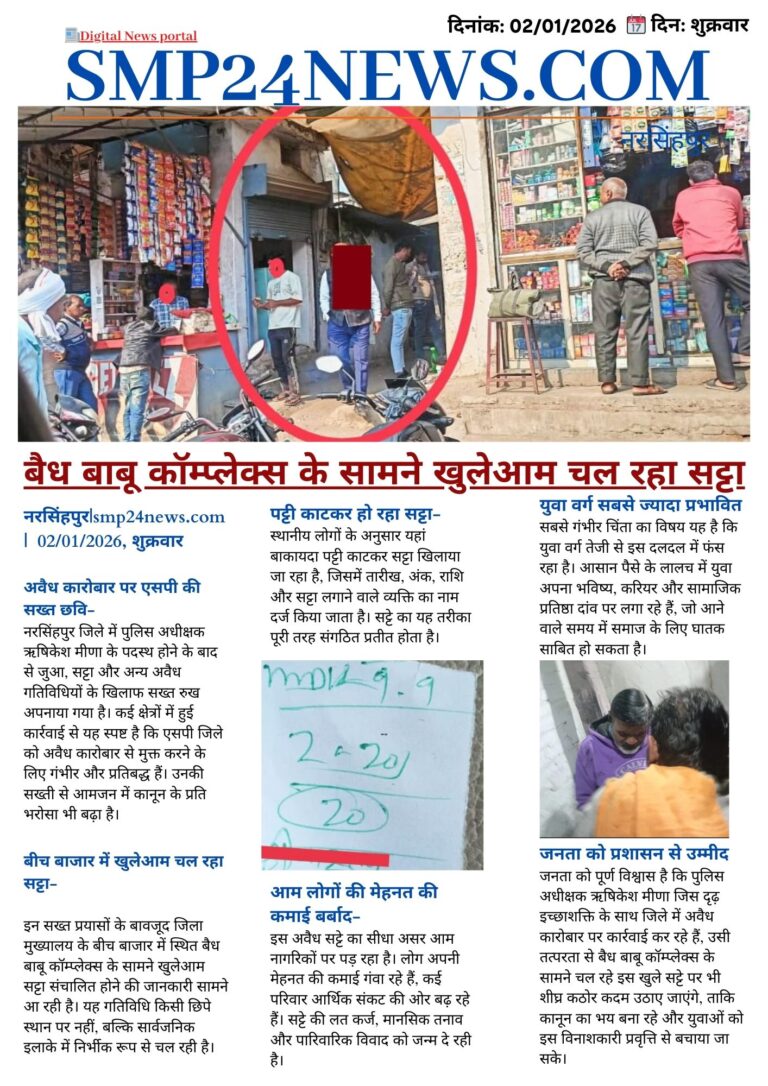 Digital News portal
दिनांक: 02/01/2026 17 दिन: शुक्रवार
SMP24NEWS.COM
नरसिंहपुर
बैध बाबू कॉम्प्लेक्स के सामने खुलेआम चल रहा सट्टा
नरसिंहपुर|smp24news.com
| 02/01/2026, शुक्रवार
अवैध कारोबार पर एसपी की
सख्त छवि–
नरसिंहपुर जिले में पुलिस अधीक्षक
ऋषिकेश मीणा के पदस्थ होने के बाद
से जुआ, सट्टा और अन्य अवैध
गतिविधियों के खिलाफ सख्त रुख
अपनाया गया है। कई क्षेत्रों में हुई
कार्रवाई से यह स्पष्ट है कि एसपी जिले
को अवैध कारोबार से मुक्त करने के
लिए गंभीर और प्रतिबद्ध हैं। उनकी
सख्ती से आमजन में कानून के प्रति
भरोसा भी बढ़ा है।
बीच बाजार में खुलेआम चल रहा
सट्टा–
इन सख्त प्रयासों के बावजूद जिला
मुख्यालय के बीच बाजार में स्थित बैध
बाबू कॉम्प्लेक्स के सामने खुलेआम
सट्टा संचालित होने की जानकारी सामने
आ रही है। यह गतिविधि किसी छिपे
स्थान पर नहीं, बल्कि सार्वजनिक
इलाके में निर्भीक रूप से चल रही है।
पट्टी काटकर हो रहा सट्टा–
स्थानीय लोगों के अनुसार यहां
बाकायदा पट्टी काटकर सट्टा खिलाया
जा रहा है, जिसमें तारीख, अंक, राशि
और सट्टा लगाने वाले व्यक्ति का नाम
दर्ज किया जाता है। सट्टे का यह तरीका
पूरी तरह संगठित प्रतीत होता है।
9.9
2 = 20/
20
आम लोगों की मेहनत की
कमाई बर्बाद–
इस अवैध सट्टे का सीधा असर आम
नागरिकों पर पड़ रहा है। लोग अपनी
मेहनत की कमाई गंवा रहे हैं, कई
परिवार आर्थिक संकट की ओर बढ़ रहे
हैं। सट्टे की लत कर्ज, मानसिक तनाव
और पारिवारिक विवाद को जन्म दे रही
है।
युवा वर्ग सबसे ज्यादा प्रभावित
सबसे गंभीर चिंता का विषय यह है कि
युवा वर्ग तेजी से इस दलदल में फंस
रहा है। आसान पैसे के लालच में युवा
अपना भविष्य, करियर और सामाजिक
प्रतिष्ठा दांव पर लगा रहे हैं, जो आने
वाले समय में समाज के लिए घातक
साबित हो सकता है।
जनता को प्रशासन से उम्मीद
जनता को पूर्ण विश्वास है कि पुलिस
अधीक्षक ऋषिकेश मीणा जिस दृढ़
इच्छाशक्ति के साथ जिले में अवैध
कारोबार पर कार्रवाई कर रहे हैं, उसी
तत्परता से बैध बाबू कॉम्प्लेक्स के
सामने चल रहे इस खुले सट्टे पर भी
शीघ्र कठोर कदम उठाए जाएंगे, ताकि
कानून का भय बना रहे और युवाओं को
इस विनाशकारी प्रवृत्ति से बचाया जा
सके।